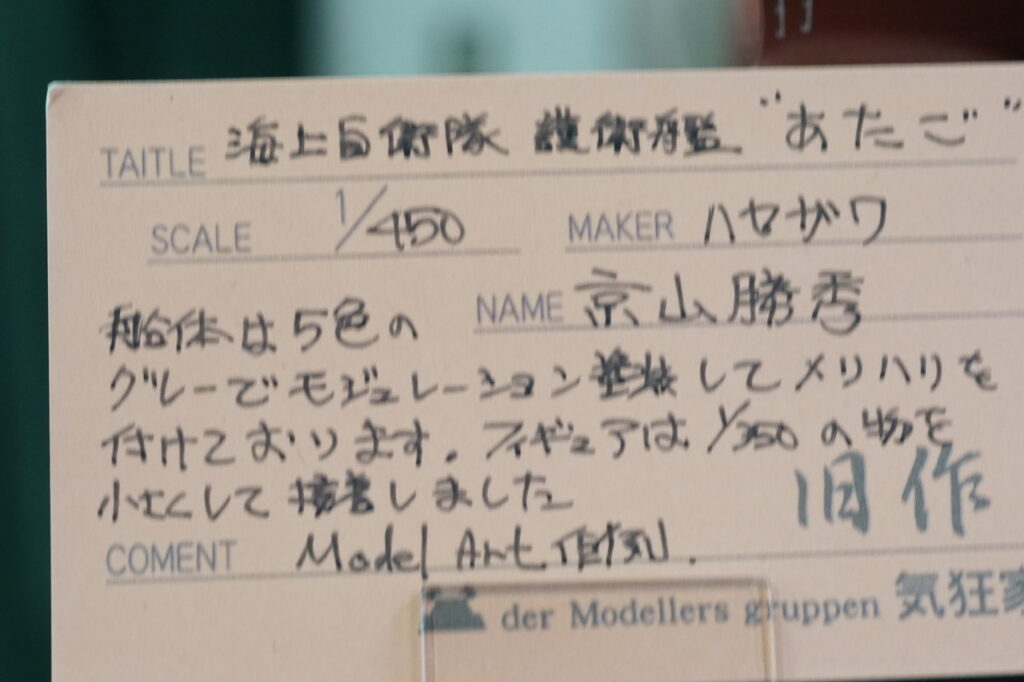 TAITLE 海上自衛隊 護衛艦 "あたご"
SCALE 1/450 MAKER ハセガワ
NAME 京山勝秀
船体は5色の
グレーでモジュレーション塗装してメリハリを
付けております。フィギュアは1/350の物を
小さくして接着しました
旧作
COMENT Model Art 作例.
der Modellers gruppen 気狂家